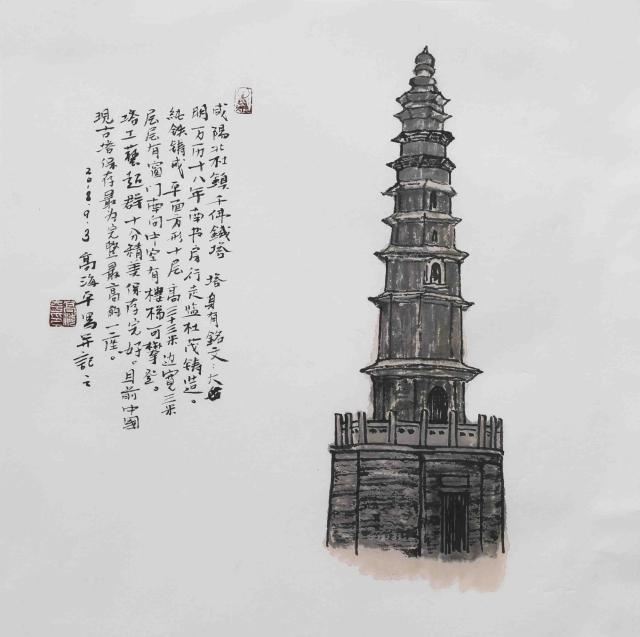 咸阳北杜鎮千佛鉄塔 塔身有銘文：大
明万历十八年南书房行走监杜茂铸造。
純鉄铸成 平面方形十层 高三十三米 边寬三米
层层有窗门南向中空有楼梯可攀登。
塔工藝超群十分精美保存完好。目前中國
現古塔保存最为完整最高的一座。
2018.9.3 高海平写并記之